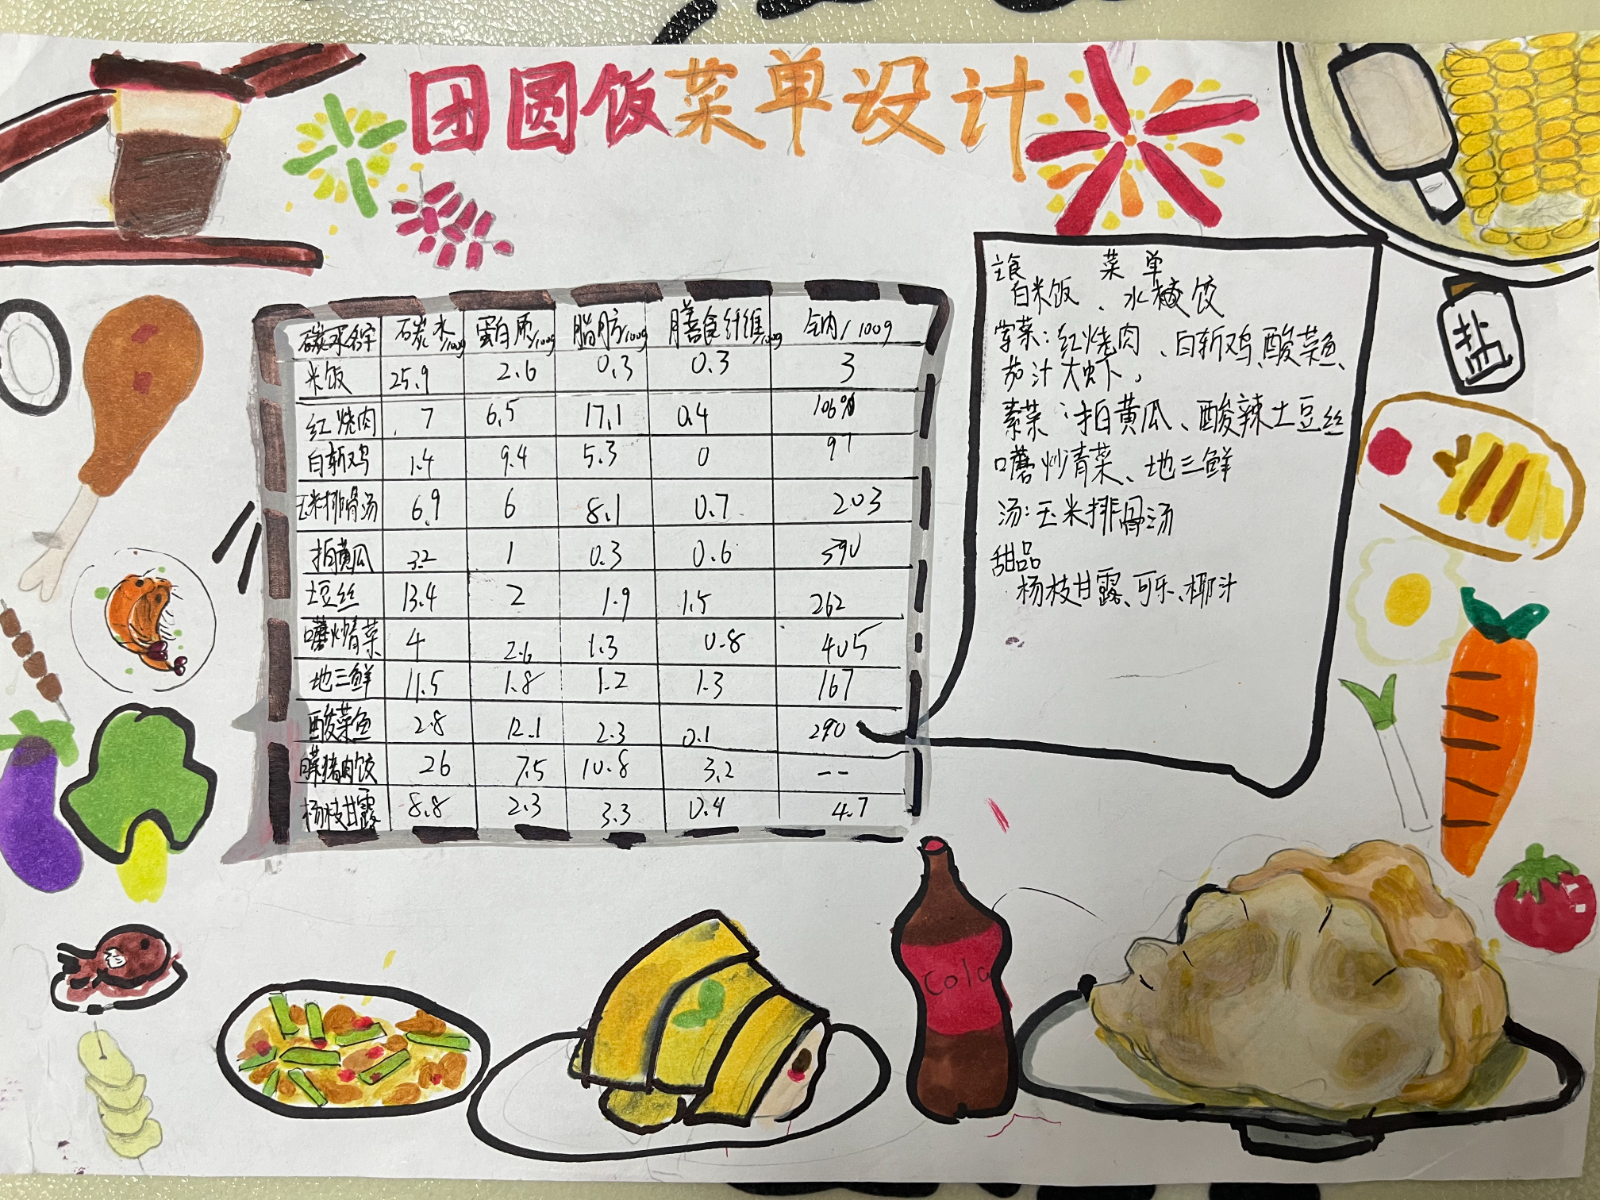 团圆饭菜单设计
碳水 /100g 蛋白质/100g 脂肪/100g 膳食纤维/100g 钠/100g
米饭 25.9 2.6 0.3 0.3 3
红烧肉 7 6.5 17.1 0.4
白斩鸡 1.4 9.4 5.3 0 97
玉米排骨汤 6.9 6 8.1 0.7 203
拍黄瓜 3.2 1 0.3 0.6 390
土豆丝 13.4 2 1.9 1.5 262
炒青菜 4 2.6 1.3 0.8 405
地三鲜 11.5 1.8 1.2 1.3 167
酸菜鱼 2.8 12.1 2.3 0.1 290
猪肉饺 26 7.5 10.8 3.2 --
杨枝甘露 8.8 2.3 3.3 0.4 4.7
主食 菜单
白米饭、水饺
荤菜:红烧肉、白斩鸡、酸菜鱼、
茄汁大虾,
素菜:拍黄瓜、酸辣土豆丝
炒青菜、地三鲜
汤:玉米排骨汤
甜品
杨枝甘露、可乐、椰汁
盐
Cola